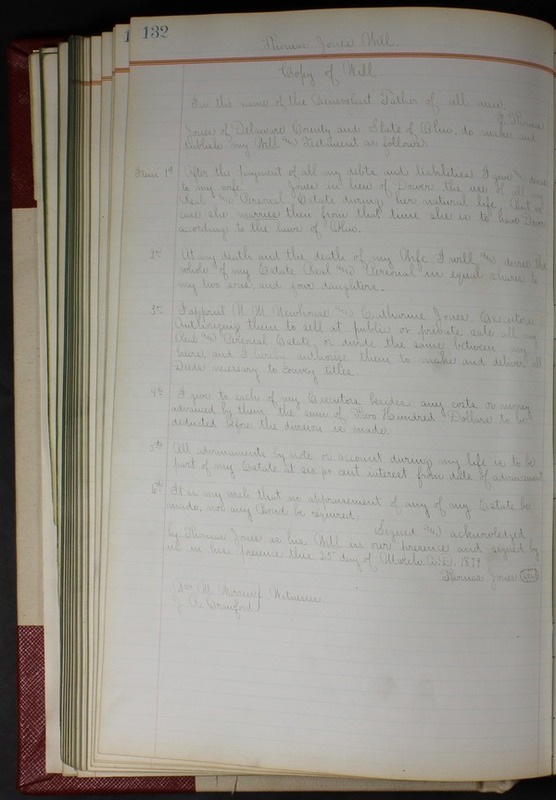 132
Thomas Jones Will.
Copy of Will
In the name of the Benevolent Father of all men,
I, Thomas
Jones of Delaware County and State of Ohio, do make and
publish my Will and Testament as follows.
Item 1st After the payment of all my debts and liabilities I give and devise
to my wife Jones in lieu of Dower the use of all my
Real and Personal Estate during her natural life, But in
case she marries then from that time she is to have Dower
according to the laws of Ohio.
2nd At my death and the death of my Wife I will and devise the
whole of my Estate Real and Personal in equal shares to
my two sons, and four daughters.
3rd I appoint N. M. Newhouse and Catharine Jones Executors
Authorizing them to sell at public or private sale all my
Real and Personal Estate, or divide the same between my
heirs, and I hereby authorize them to make and deliver all
Deeds necessary to convey titles.
4th I give to each of my Executors besides any costs or money
advanced by them the sum of Two Hundred Dollars to be
deducted before the division is made.
5th All advancements by note or account during my life is to be
part of my Estate at six per cent interest from date of advancement
6th It is my wish that no appraisement of any of my Estate be
made, nor any Bond be required.
Signed and acknowledged
by Thomas Jones as his Will in our presence and signed by
us in his presence this 25 day of March A.D. 1879
Thomas Jones
Wm M. Witnesses
J. A. Crawford